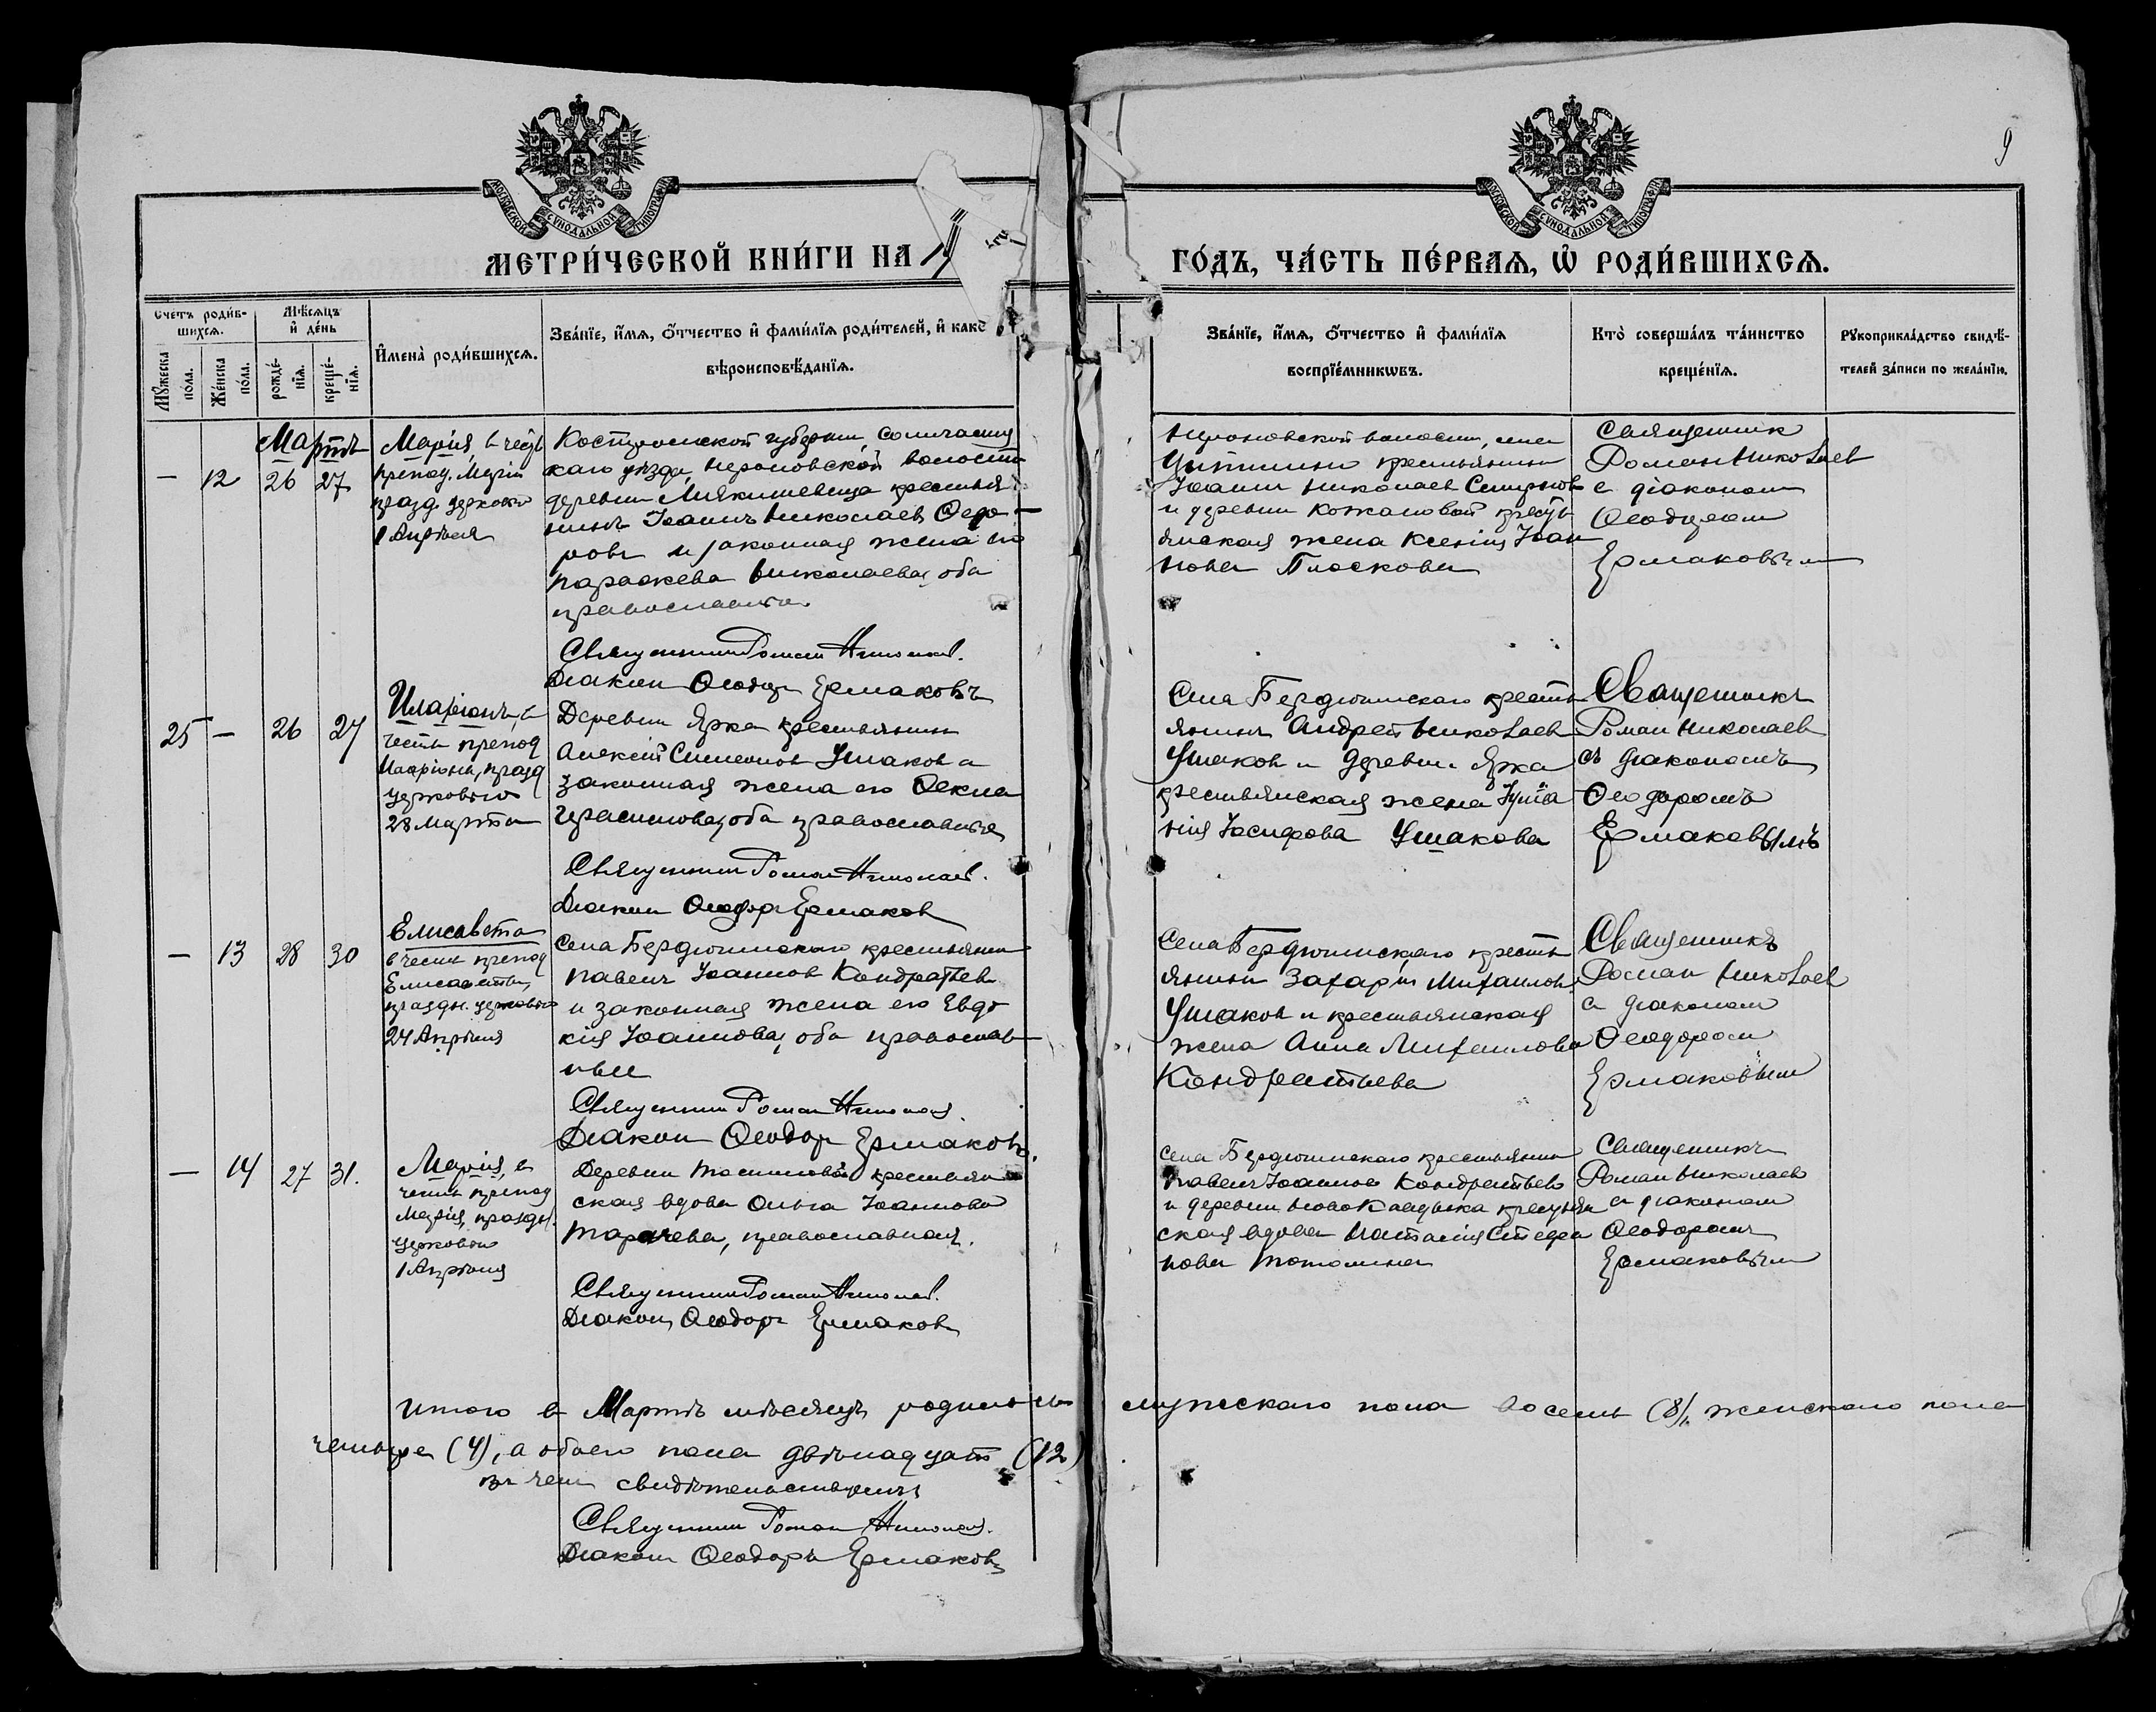 9
МОСКОВСКОЙ СУНОДАЛЬНОЙ ТИПОГРАФІИ
МОСКОВСКОЙ СУНОДАЛЬНОЙ ТИПОГРАФІИ
МЕТРИ́ЧЕСКОЙ КНИ́ГИ НА
ГО́ДЪ, ЧА́СТЬ ПЕ́РВАЯ, Ѡ РОДИ́ВШИХСЯ.
Счетъ роди́в-
шихся.
Му́жеска
по́ла.
Же́нска
по́ла.
Мѣ́сяцъ
и де́нь
рожде́-
нїя.
креще́-
нїя.
Имена̀ роди́вшихся.
Зва́нїе, и́мя, о́тчество и фами́лїя роди́телей, и како́
вѣроисповѣ́данїя.
Зва́нїе, и́мя, о́тчество и фами́лїя
воспрїе́мникѡвъ.
Кто̀ соверша́лъ та́инство
креще́нїя.
Рꙋкоприкла́дство свидѣ́-
телей за́писи по жела́нїю.
Мартъ
— 12 26 27
Марія, в честь
препод. Маріи
празд. церковію
1 Апрѣля
Костромской губерніи, Солигалиц
каго уѣзда, Нероновской волости
деревни крестья-
нинъ Іоаннъ Николаевъ Ѳедо-
ровъ и законная жена его
Параскева Николаева, оба
православные.
Священникъ Роман Николаев.
Діакон Ѳеодоръ Ермаковъ
Нероновской волости, села
крестьянинъ
Іоаннъ Николаев Смирновъ
и деревни Кожановой кресть
янская жена Ксенія Іоан
нова Плоскова
Священник
Роман Николаев
с діаконом
Ѳеодором
Ермаковым
25 — 26 27
Иларіонъ, в
честь препод
Иларіона, празд
церковію
28 Марта
Деревни Ярка крестьянинъ
Алексій Симеонов Ушаков и
законная жена его Ѳекла
Герасимова, оба православные
Священникъ Роман Николаев.
Діакон Ѳеодоръ Ермаков
Села Бердюгинскаго кресть
янинъ Андрей Николаев
Ушаков и деревни Ярка
крестьянская жена Іуліа
нія Іосифова Ушакова
Священникъ
Роман Николаев
съ діакономъ
Ѳеодоромъ
Ермаковымъ
— 13 28 30
Елисавета
в честь препод
Елисаветы,
праздн. церковію
24 Апрѣля
Села Бердюгинскаго крестьянин
Павелъ Іоаннов Кондратьев
и законная жена его Евдо
кія Іоаннова, оба православ-
ные
Священникъ Роман Николаев.
Діакон Ѳеодоръ Ермаковъ.
Села Бердюгинскаго кресть
янинъ Захарій Михаилов
Ушаков и крестьянская
жена Анна Михаилова
Кондратьева
Священникъ
Роман Николаев
с діаконом
Ѳеодором
Ермаковым
— 14 27 31.
Марія, в
честь препод
Маріи, праздн.
церковію
1 Апрѣля
Деревни крестьян
ская вдова Ольга Іоаннова
православная.
Священникъ Роман Николаев.
Діаконъ Ѳеодоръ Ермаковъ
Села Бердюгинскаго крестьянинъ
Павелъ Іоаннов Кондратьев
и деревни крестьян
ская вдова Анастасія Стефа
нова Потомина
Священникъ
Роман Николаев
с діаконом
Ѳеодоромъ
Ермаковым
Итого в Мартѣ мѣсяцѣ родилось мужескаго пола восемь (8), женскаго пола
четыре (4), а обоего пола двѣнадцать (12)
въ чем свидѣтельствуемъ
Священникъ Роман Николаев.
Діакон Ѳеодоръ Ермаковъ